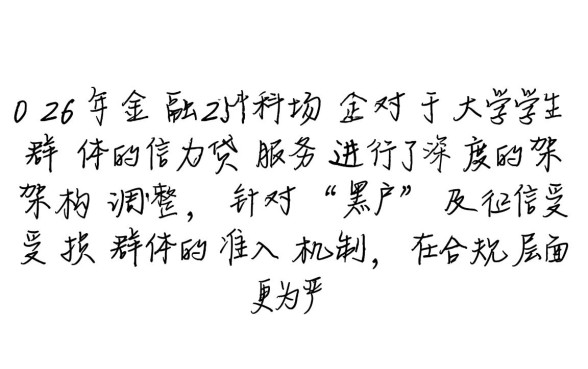 0 26年金融科场 企对于大学学生
群体的信力贷服务进行了深度的架
架构调整，针对“黑户”及征信受
受损群体的准入机制，在合规层面
更为严